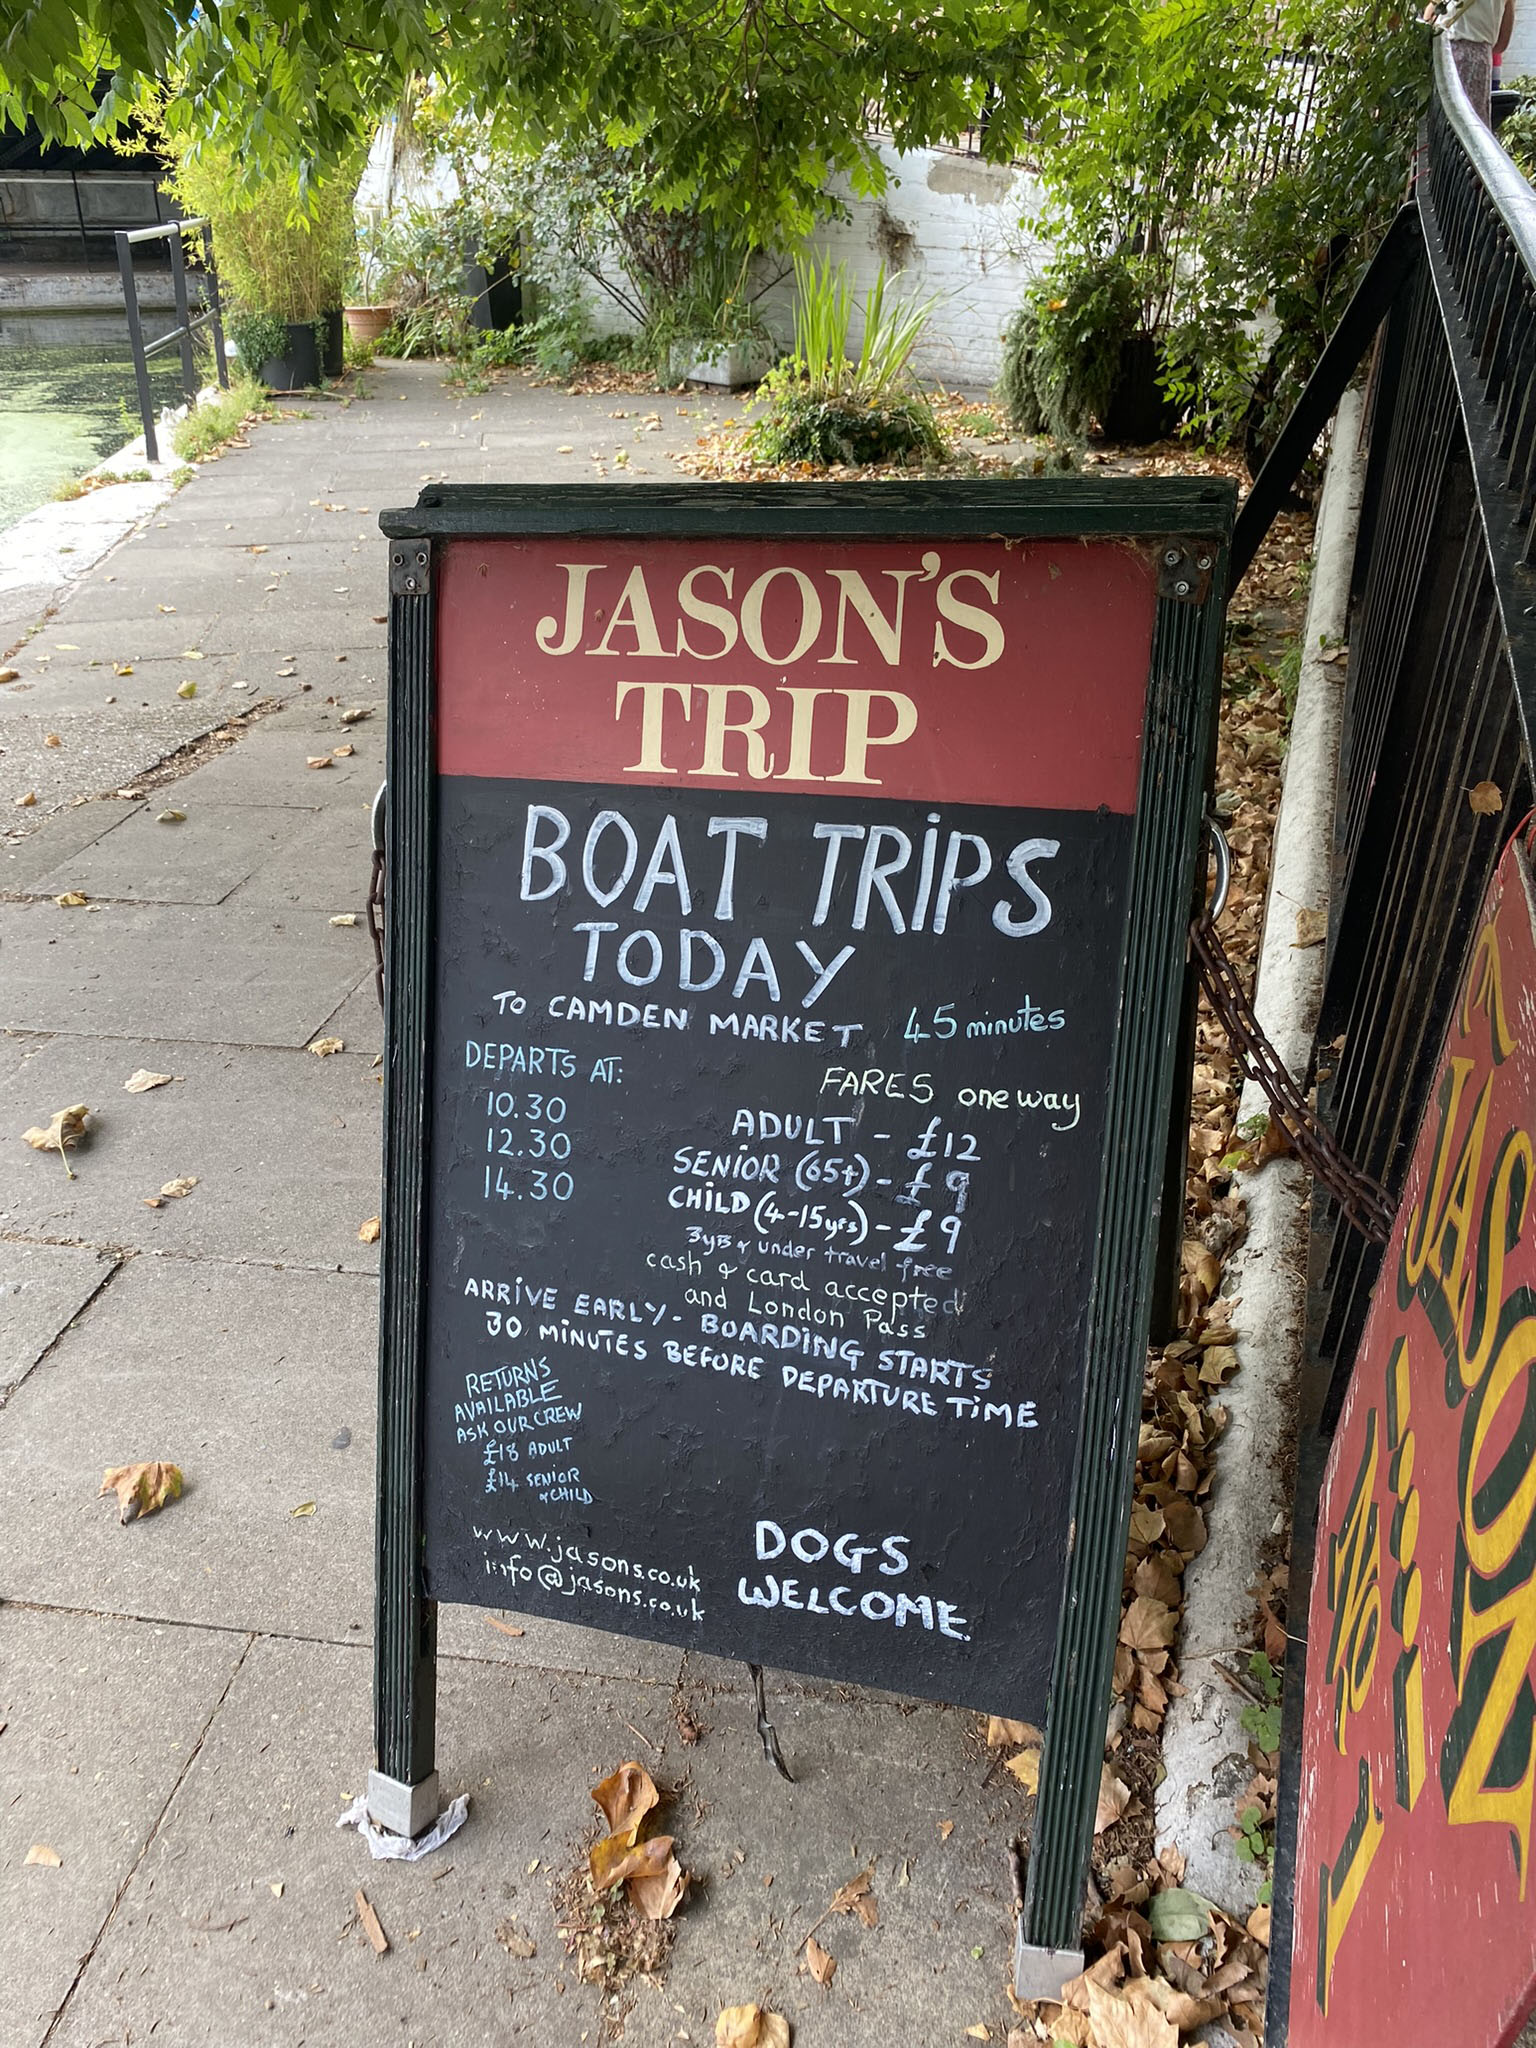 JASON'S
TRIP
BOAT TRIPS
TODAY
TO CAMDEN MARKET 45 minutes
DEPARTS AT:
10.30
12.30
14.30
FARES one way
ADULT - £12
SENIOR (65+) - £9
CHILD (4-15yrs) - £9
3yrs & under travel free
cash & card accepted
and London Pass
ARRIVE EARLY - BOARDING STARTS
30 MINUTES BEFORE DEPARTURE TIME
RETURNS
AVAILABLE
ASK OUR CREW
£18 ADULT
£14 SENIOR
& CHILD
www.jasons.co.uk
info@jasons.co.uk
DOGS
WELCOME
JASON